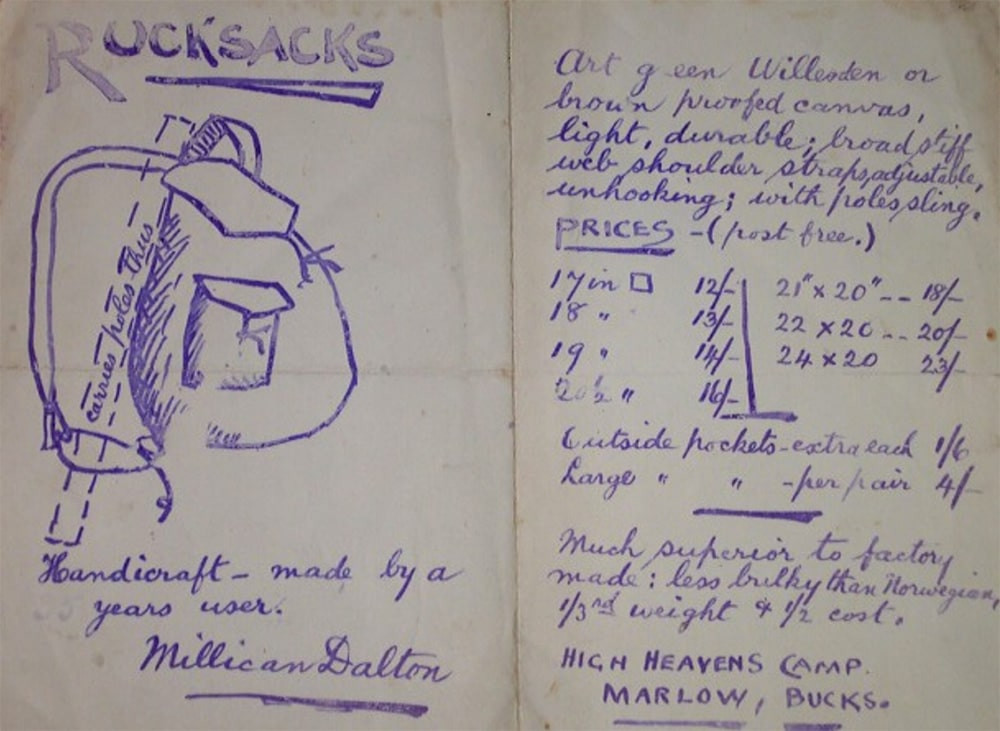 RUCKSACKS
carries poles thus
Handicraft – made by a
years user.
Millican Dalton
Art g een Willesden or
brown proofed canvas,
light, durable; broad stiff
web shoulder straps, adjustable,
unhooking; with poles sling.
PRICES – (post free.)
17 in □ 12/- 21" x 20" -- 18/-
18 " 13/- 22 x 20 -- 20/-
19 " 14/- 24 x 20 23/-
20½ " 16/-
Outside pockets - extra each 1/6
Large " " - per pair 4/-
Much superior to factory
made: less bulky than Norwegian,
1/3rd weight & 1/2 cost.
HIGH HEAVENS CAMP.
MARLOW, BUCKS.